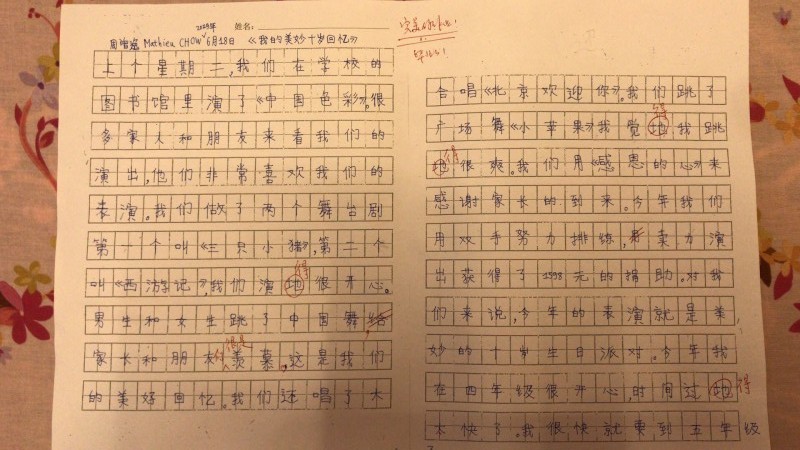 2024年 姓名:
Mathieu CHOW 6月18日 《我的美妙十岁回忆》
上个星期二,我们在学校的
图书馆里演了《中国色彩》。很
多家人和朋友来看我们的
演出,他们非常喜欢我们的
表演。我们做了两个舞台剧
第一个叫《三只小猪》,第二个
得
叫《西游记》,我们演地很开心。
男生和女生跳了中国舞给
很是
家长和朋友们羡慕。这是我们
的美好回忆。我们还唱了大
合唱《北京欢迎你》。我们跳了
得
广场舞《小苹果》我觉地我跳
得
地很爽。我们用《感恩的心》来
感谢家长的到来。今年我们
用双手努力排练,卖力演
出获得了1598元的捐助。对我
们来说,今年的表演就是美
妙的十岁生日派对。今年我
在四年级很开心,时间过地得
太快了。我很快就要到五年级